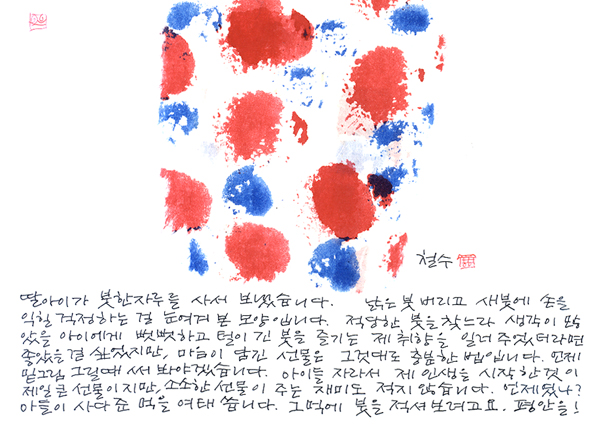 철수
딸아이가 붓한자루를 사서 보냈습니다. 낡은 붓 버리고 새붓에 손을
익힐 걱정하는 걸 눈여겨 본 모양입니다. 적당한 붓을 찾느라 생각이 많
았을 아이에게 뻣뻣하고 털이 긴 붓을 즐기는 제 취향을 일러 주었더라면
좋았을걸 싶었지만, 마음이 담긴 선물은 그것대로 충분한 법입니다. 언제
밑그림 그릴때 써 봐야겠습니다. 아이들 자라서 제 인생을 시작한 것이
제일 큰 선물이지만, 소소한 선물이 주는 재미도 적지 않습니다. 언제였나?
아들이 사다 준 먹을 여태 씁니다. 그먹에 붓을 적셔 보려고요. 평안을!